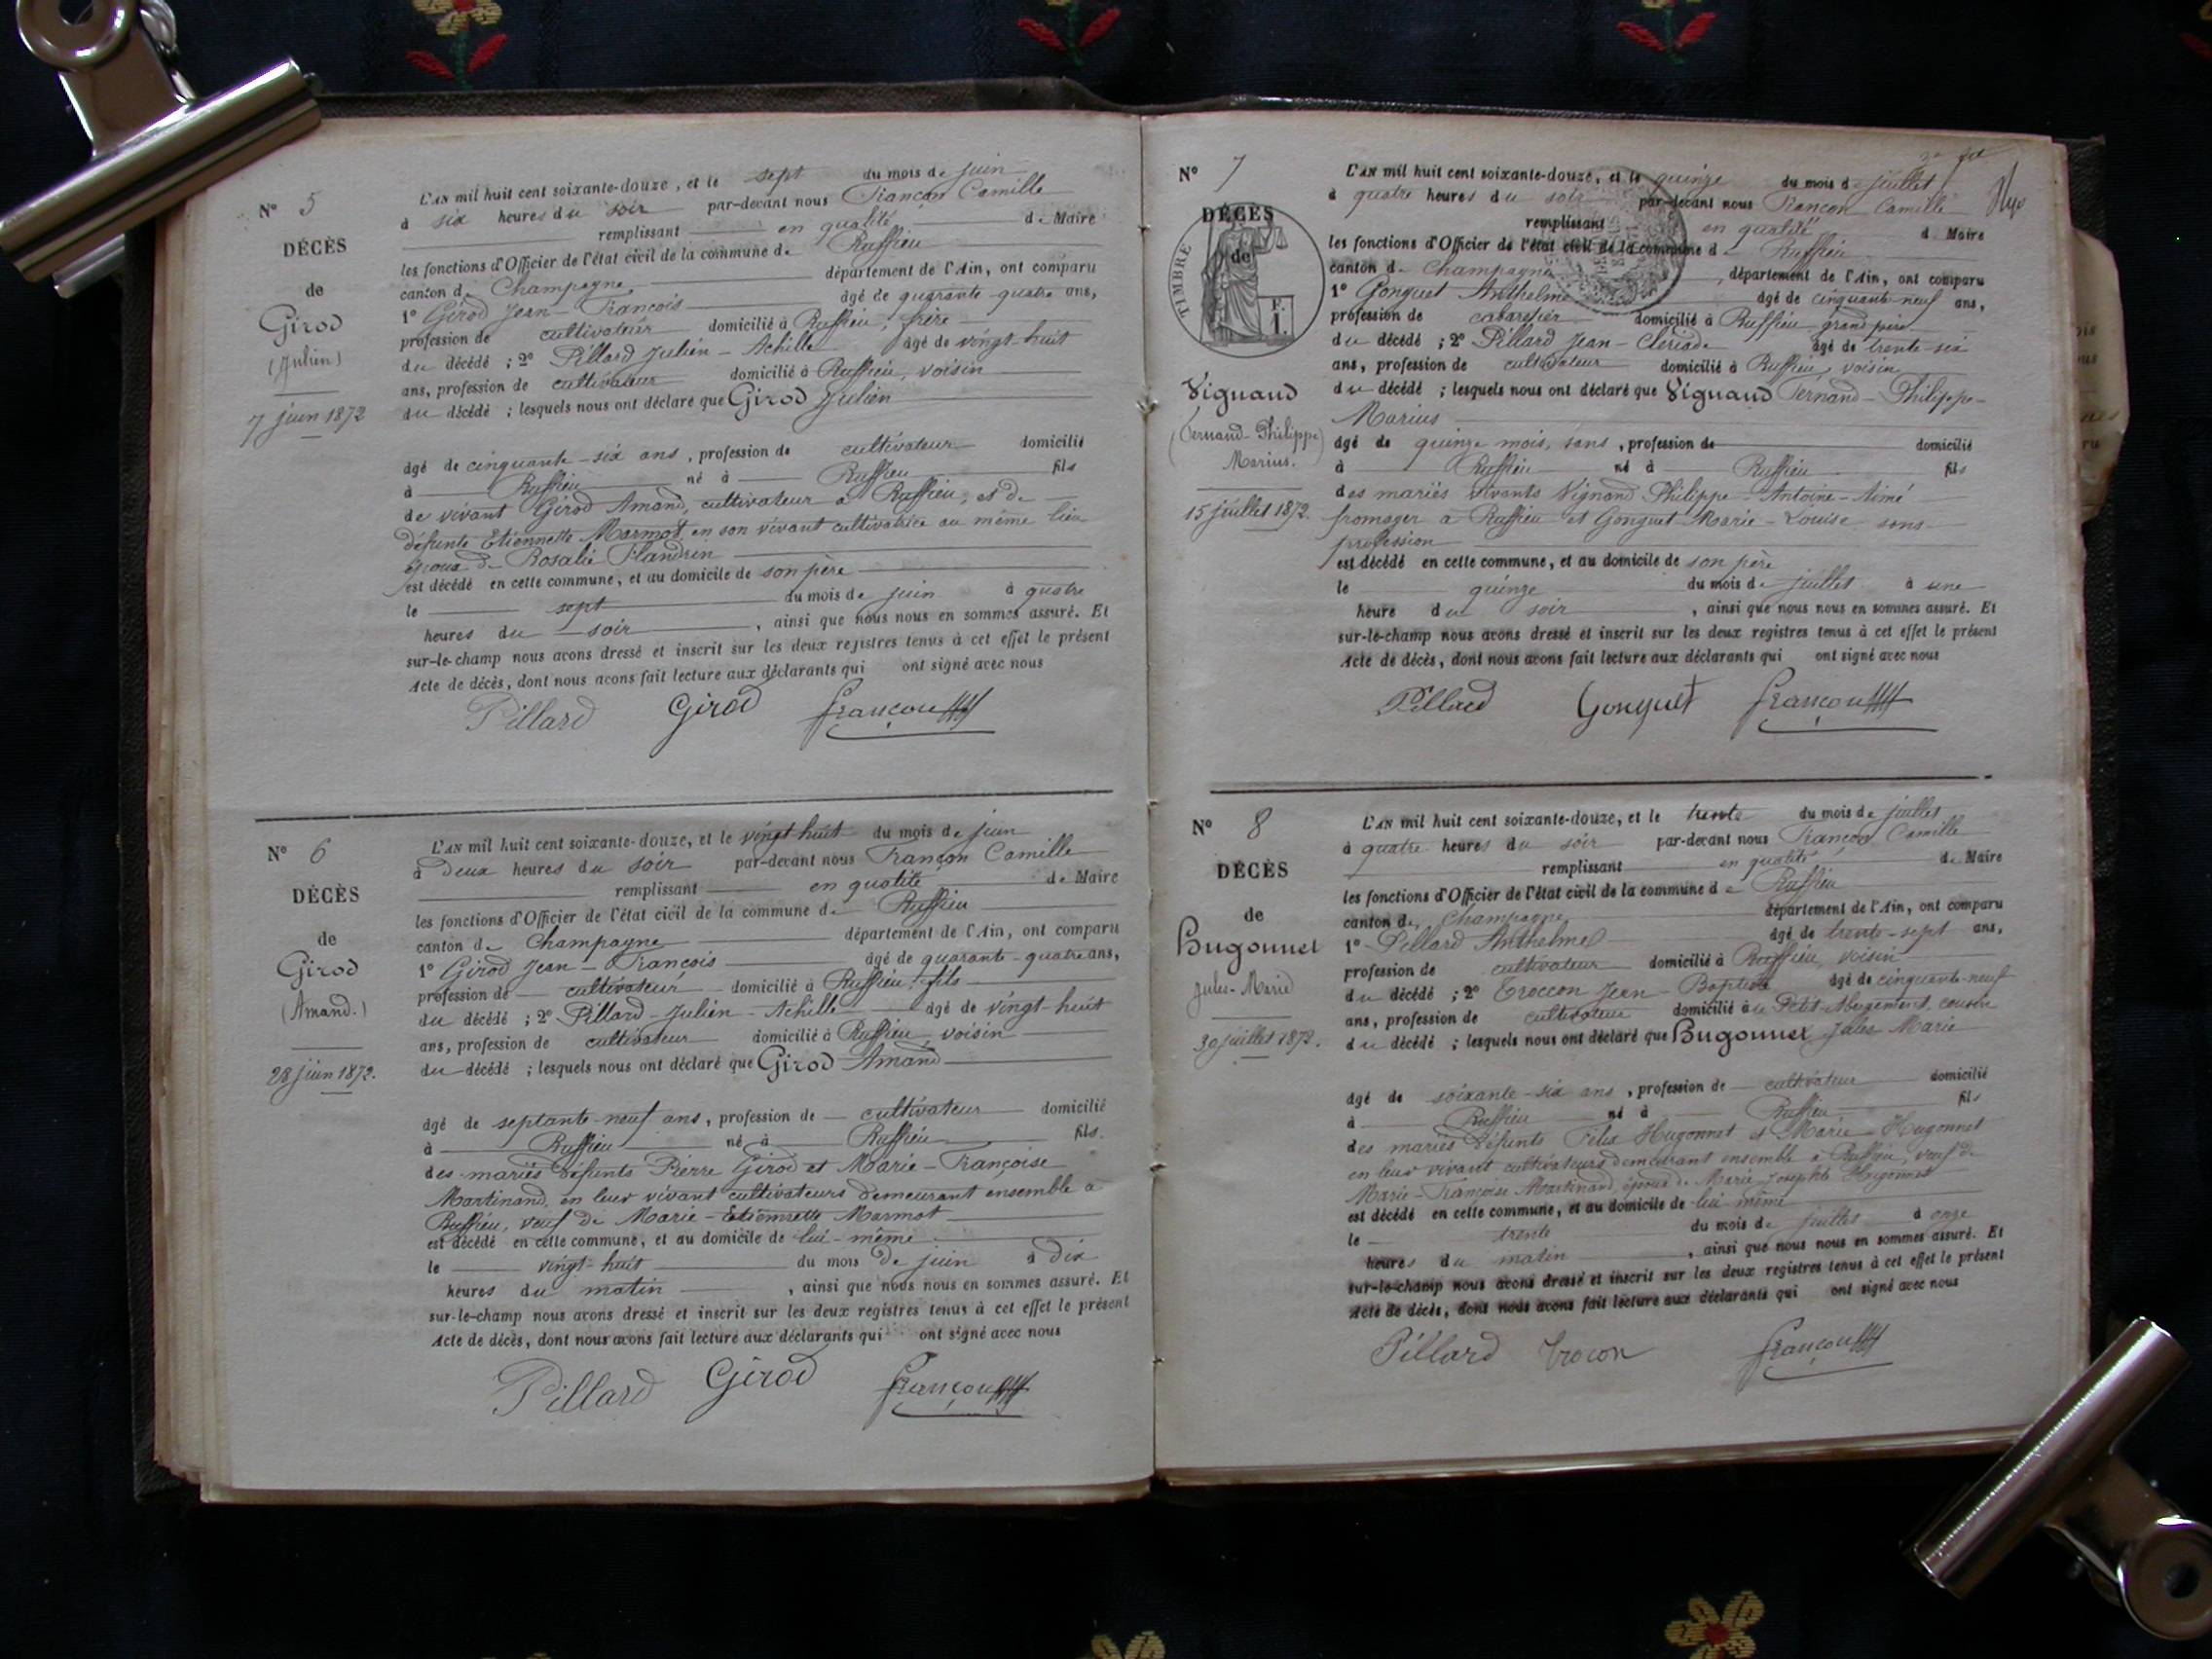 N° 5
DÉCÈS
de
Girod
(Julien)
7 juin 1872
L'AN mil huit cent soixante-douze, et le sept du mois de juin
à six heures du soir par-devant nous Françon Camille
remplissant en qualité de Maire
les fonctions d'Officier de l'état civil de la commune de Ruffieu
canton de Champagne département de l'Ain, ont comparu
1° Girod Jean-François âgé de quarante-quatre ans,
profession de cultivateur domicilié à Ruffieu, frère
du décédé ; 2° Pillard Julien-Achille âgé de vingt-huit
ans, profession de cultivateur domicilié à Ruffieu, voisin
du décédé ; lesquels nous ont déclaré que Girod Julien
âgé de cinquante-six ans, profession de cultivateur domicilié
à Ruffieu né à Ruffieu fils
de vivant Girod Amand, cultivateur à Ruffieu, et de
défunte Etiennette Marmot, en son vivant cultivatrice au même lieu
époux de Rosalie Flandrin
est décédé en cette commune, et au domicile de son père
le sept du mois de juin à quatre
heures du soir, ainsi que nous nous en sommes assuré. Et
sur-le-champ nous avons dressé et inscrit sur les deux registres tenus à cet effet le présent
Acte de décès, dont nous avons fait lecture aux déclarants qui ont signé avec nous
Pillard Girod Françon
N° 6
DÉCÈS
de
Girod
(Amand.)
28 juin 1872.
L'AN mil huit cent soixante-douze, et le vingt-huit du mois de juin
à deux heures du soir par-devant nous Françon Camille
remplissant en qualité de Maire
les fonctions d'Officier de l'état civil de la commune de Ruffieu
canton de Champagne département de l'Ain, ont comparu
1° Girod Jean-François âgé de quarante-quatre ans,
profession de cultivateur domicilié à Ruffieu, fils
du décédé ; 2° Pillard-Julien-Achille âgé de vingt-huit
ans, profession de cultivateur domicilié à Ruffieu, voisin
du décédé ; lesquels nous ont déclaré que Girod Amand
âgé de septante-neuf ans, profession de cultivateur domicilié
à Ruffieu né à Ruffieu fils.
des mariés défunts Pierre Girod et Marie-Françoise
Martinand, en leur vivant cultivateurs demeurant ensemble à
Ruffieu, veuf de Marie-Etiennette Marmot
est décédé en cette commune, et au domicile de lui-même
le vingt-huit du mois de juin à dix
heures du matin, ainsi que nous nous en sommes assuré. Et
sur-le-champ nous avons dressé et inscrit sur les deux registres tenus à cet effet le présent
Acte de décès, dont nous avons fait lecture aux déclarants qui ont signé avec nous
Pillard Girod Françon
N° 7
DÉCÈS
de
TIMBRE
F.
1.
Vignand
(Fernand-Philippe)
Marius.
15 juillet 1872.
L'AN mil huit cent soixante-douze, et le quinze du mois de juillet
à quatre heures du soir par-devant nous Françon Camille
remplissant en qualité de Maire
les fonctions d'Officier de l'état civil de la commune de Ruffieu
canton de Champagne, département de l'Ain, ont comparu
1° Gonguet Anthelme âgé de cinquante-neuf ans,
profession de cabaretier domicilié à Ruffieu grand père
du décédé ; 2° Pillard Jean-Clériade âgé de trente-six
ans, profession de cultivateur domicilié à Ruffieu, voisin
du décédé ; lesquels nous ont déclaré que Vignand Fernand-Philippe-
Marius
âgé de quinze mois, sans, profession de domicilié
à Ruffieu né à Ruffieu fils
des mariés vivants Vignand Philippe-Antoine-Aimé
fromager à Ruffieu et Gonguet Marie-Louise sans
profession
est décédé en cette commune, et au domicile de son père
le quinze du mois de juillet à une
heure du soir, ainsi que nous nous en sommes assuré. Et
sur-le-champ nous avons dressé et inscrit sur les deux registres tenus à cet effet le présent
Acte de décès, dont nous avons fait lecture aux déclarants qui ont signé avec nous
Pillard Gonguet Françon
N° 8
DÉCÈS
de
Hugonnet
Jules-Marie
30 juillet 1872.
L'AN mil huit cent soixante-douze, et le trente du mois de juillet
à quatre heures du soir par-devant nous Françon Camille
remplissant en qualité de Maire
les fonctions d'Officier de l'état civil de la commune de Ruffieu
canton de Champagne département de l'Ain, ont comparu
1° Pillard Anthelme âgé de trente-sept ans,
profession de cultivateur domicilié à Ruffieu, voisin
du décédé ; 2° Troccon Jean-Baptiste âgé de cinquante-neuf
ans, profession de cultivateur domicilié à Petit-Abergement, cousin
du décédé ; lesquels nous ont déclaré que Hugonnet Jules Marie
âgé de soixante-six ans, profession de cultivateur domicilié
à Ruffieu né à Ruffieu fils
des mariés défunts Félix Hugonnet et Marie Hugonnet
en leur vivant cultivateurs demeurant ensemble à Ruffieu, veuf de
Marie-Françoise Martinand, époux de Marie-Josephte Hugonnet
est décédé en cette commune, et au domicile de lui-même
le trente du mois de juillet à onze
heures du matin, ainsi que nous nous en sommes assuré. Et
sur-le-champ nous avons dressé et inscrit sur les deux registres tenus à cet effet le présent
Acte de décès, dont nous avons fait lecture aux déclarants qui ont signé avec nous
Pillard Trocon Françon